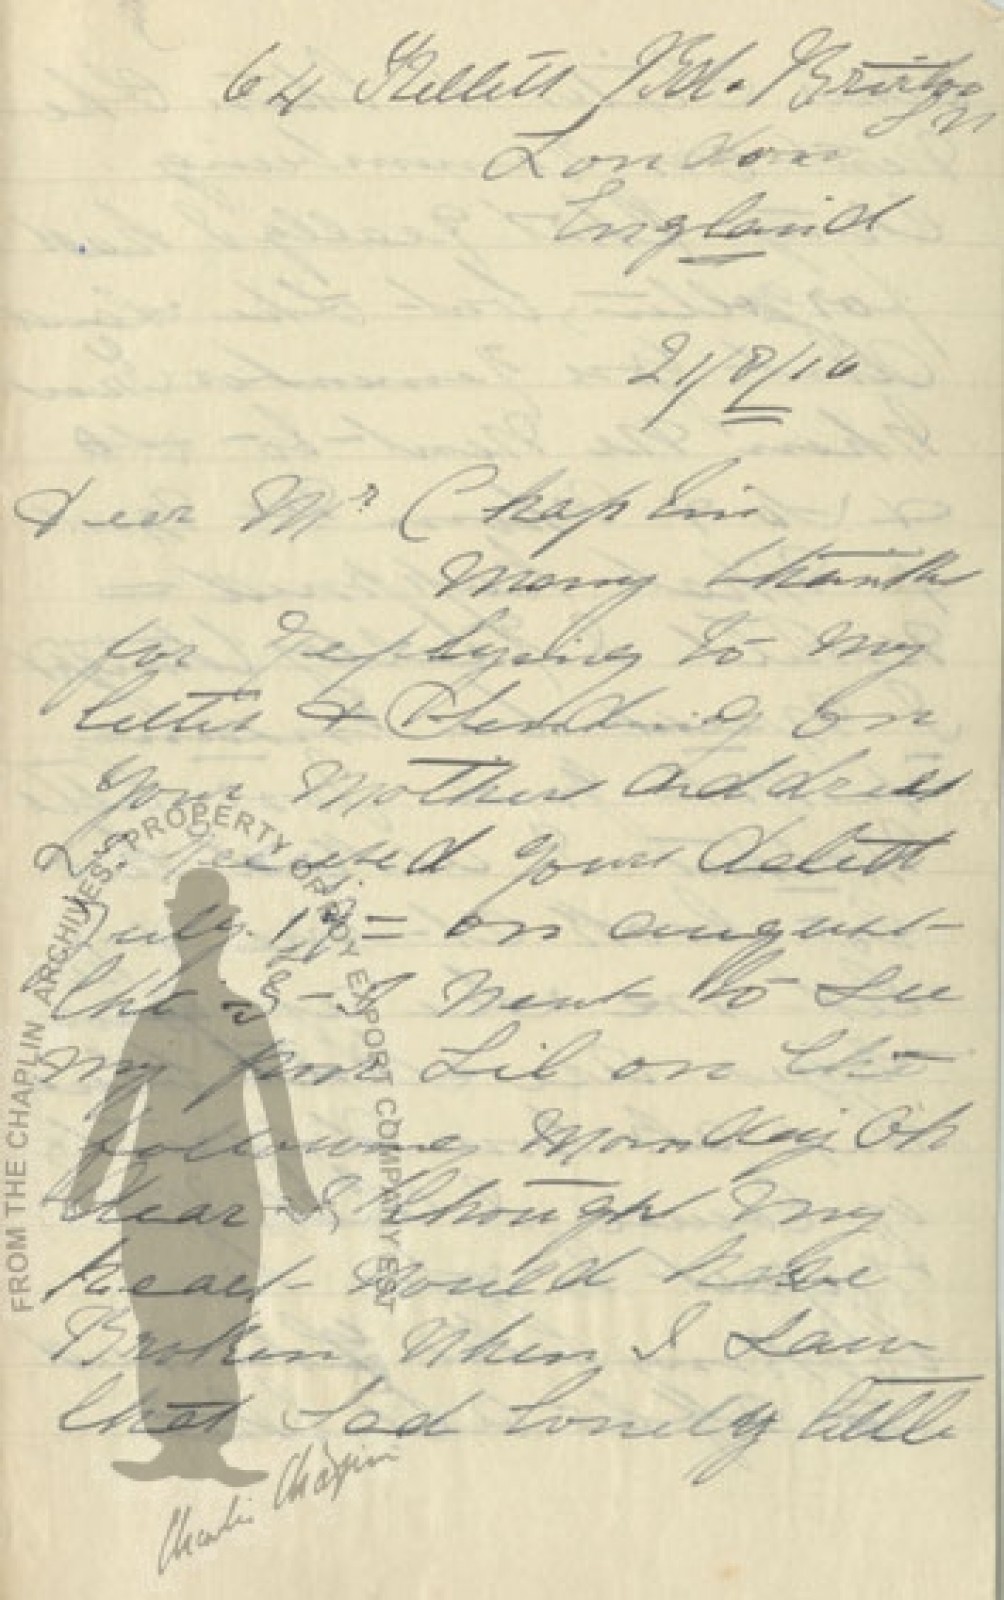 64 Kellett Rd. Brixton
SW
London
England
21/8/16
Dear Mr Chaplin
Many thanks
for replying to my
letter & Sending on
your Mothers address
I received your
July on august
the I went to see
my poor Lil on the
following Monday Oh
dear I though my
heart would have
Broken when I saw
that Sad Lonely little
FROM THE CHAPLIN ARCHIVES. PROPERTY OF ROY EXPORT COMPANY EST
Charlie Chaplin